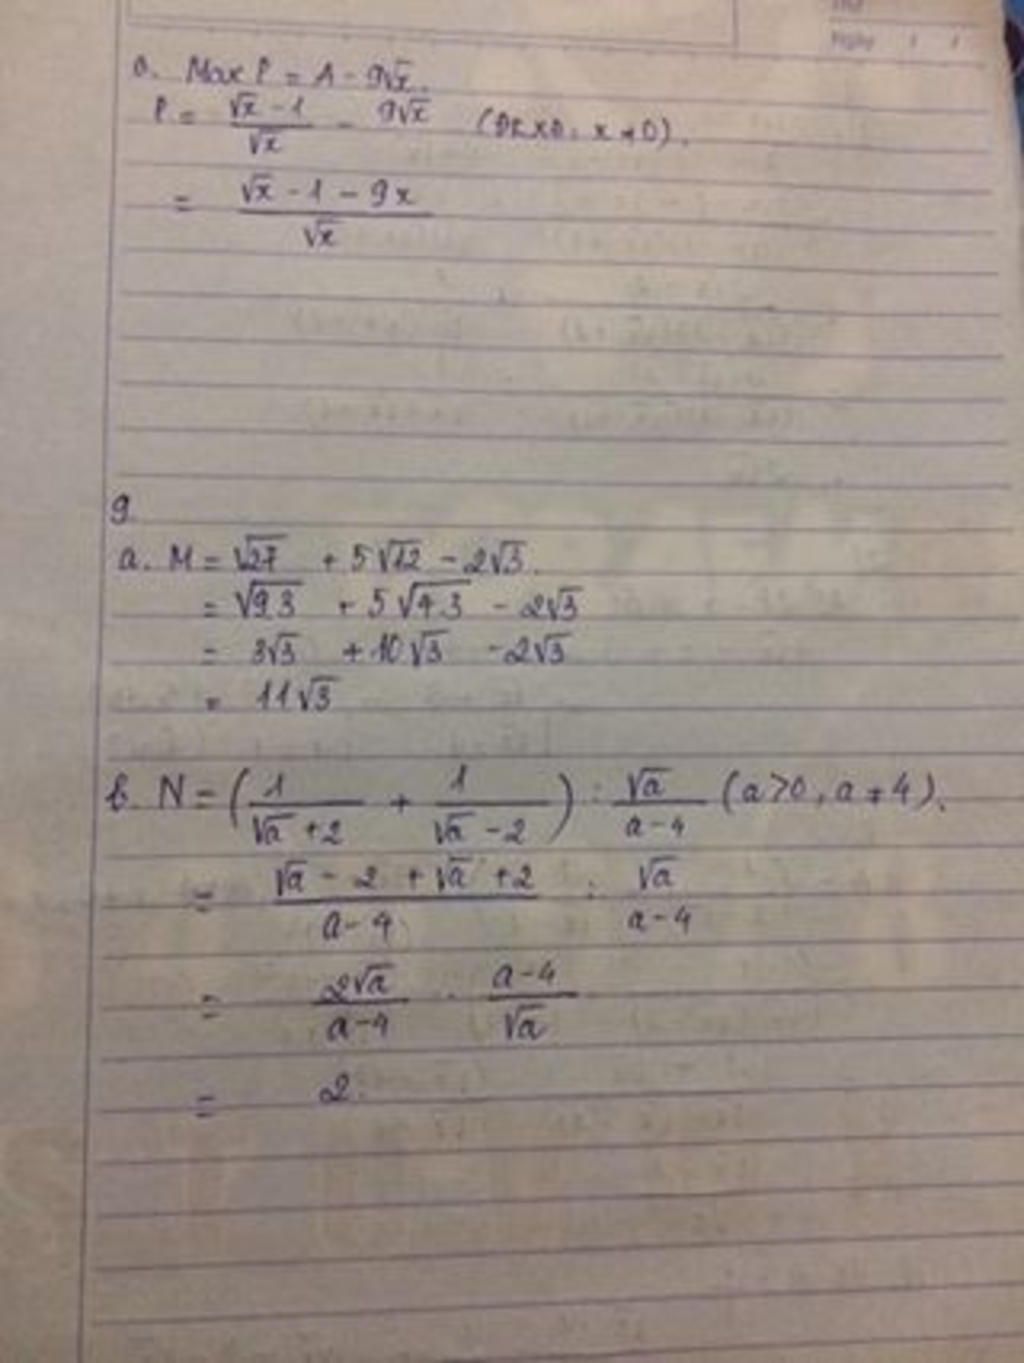 c. Max P = A - 9√x.
P = (√x - 1)/√x - 9√x (ĐKXĐ: x ≠ 0).
= (√x - 1 - 9x)/√x
9.
a. M = √27 + 5√12 - 2√3.
= √9.3 + 5√4.3 - 2√3
= 3√3 + 10√3 - 2√3
= 11√3
b. N = (1/(√a + 2) + 1/(√a - 2)) : √a/(a - 4) (a > 0, a ≠ 4).
= (√a - 2 + √a + 2)/(a - 4) : √a/(a - 4)
= 2√a/(a - 4) . (a - 4)/√a
= 2.